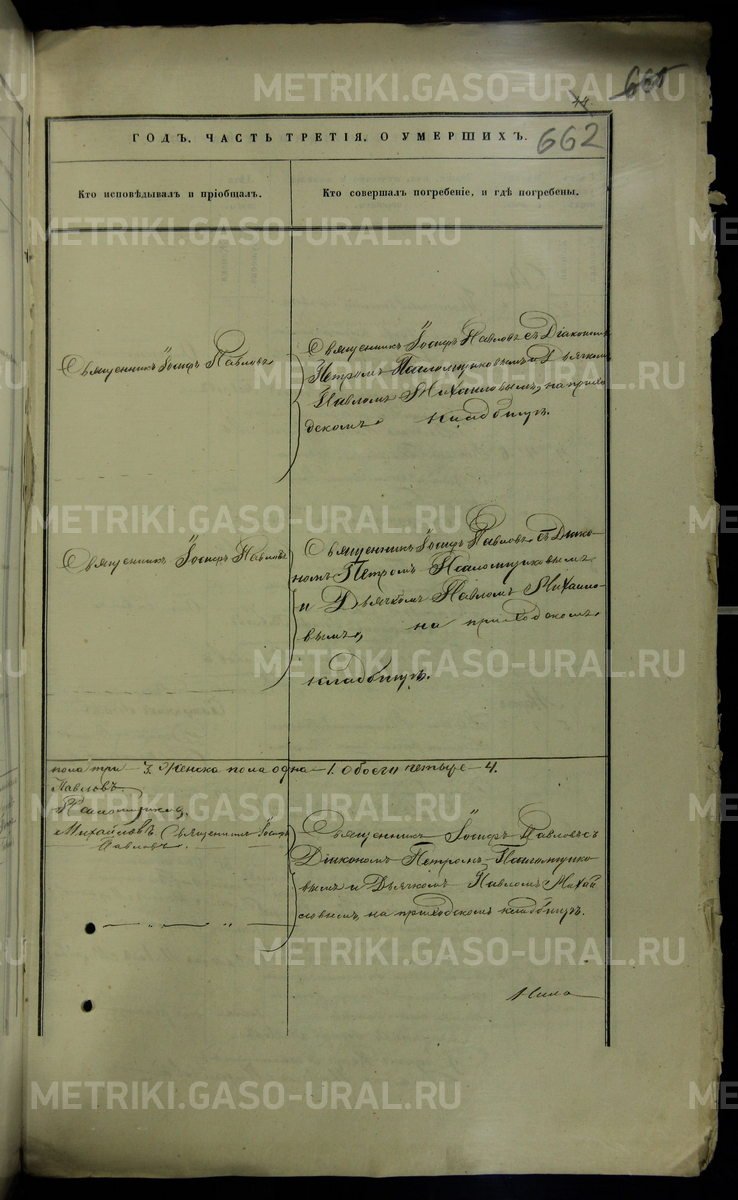 METRIKI.GASO-URAL.RU
662
ГОДЪ. ЧАСТЬ ТРЕТІЯ. О УМЕРШИХЪ.
Кто исповѣдывалъ и пріобщалъ.
Кто совершалъ погребеніе, и гдѣ погребены.
Священникъ Іосифъ Павловъ
Священникъ Іосифъ Павловъ съ Діакономъ
Петромъ Псаломщиковымъ и Дьячкомъ
Павломъ Михайловымъ, на прихо
дскомъ кладбищѣ.
Священникъ Іосифъ Павловъ
Священникъ Іосифъ Павловъ съ Діако-
номъ Петромъ Псаломщиковымъ
и Дьячкомъ Павломъ Михайло-
вымъ, на приходскомъ
кладбищѣ.
пола три — 3. Женска пола одна — 1. Обоего четыре — 4.
Павловъ
Псаломщиковъ
Михайловъ
Священникъ Іосифъ
Павловъ.
Священникъ Іосифъ Павловъ съ
Діакономъ Петромъ Псаломщико
вымъ и Дьячкомъ Павломъ Михай
ловымъ, на приходскомъ кладбищѣ.